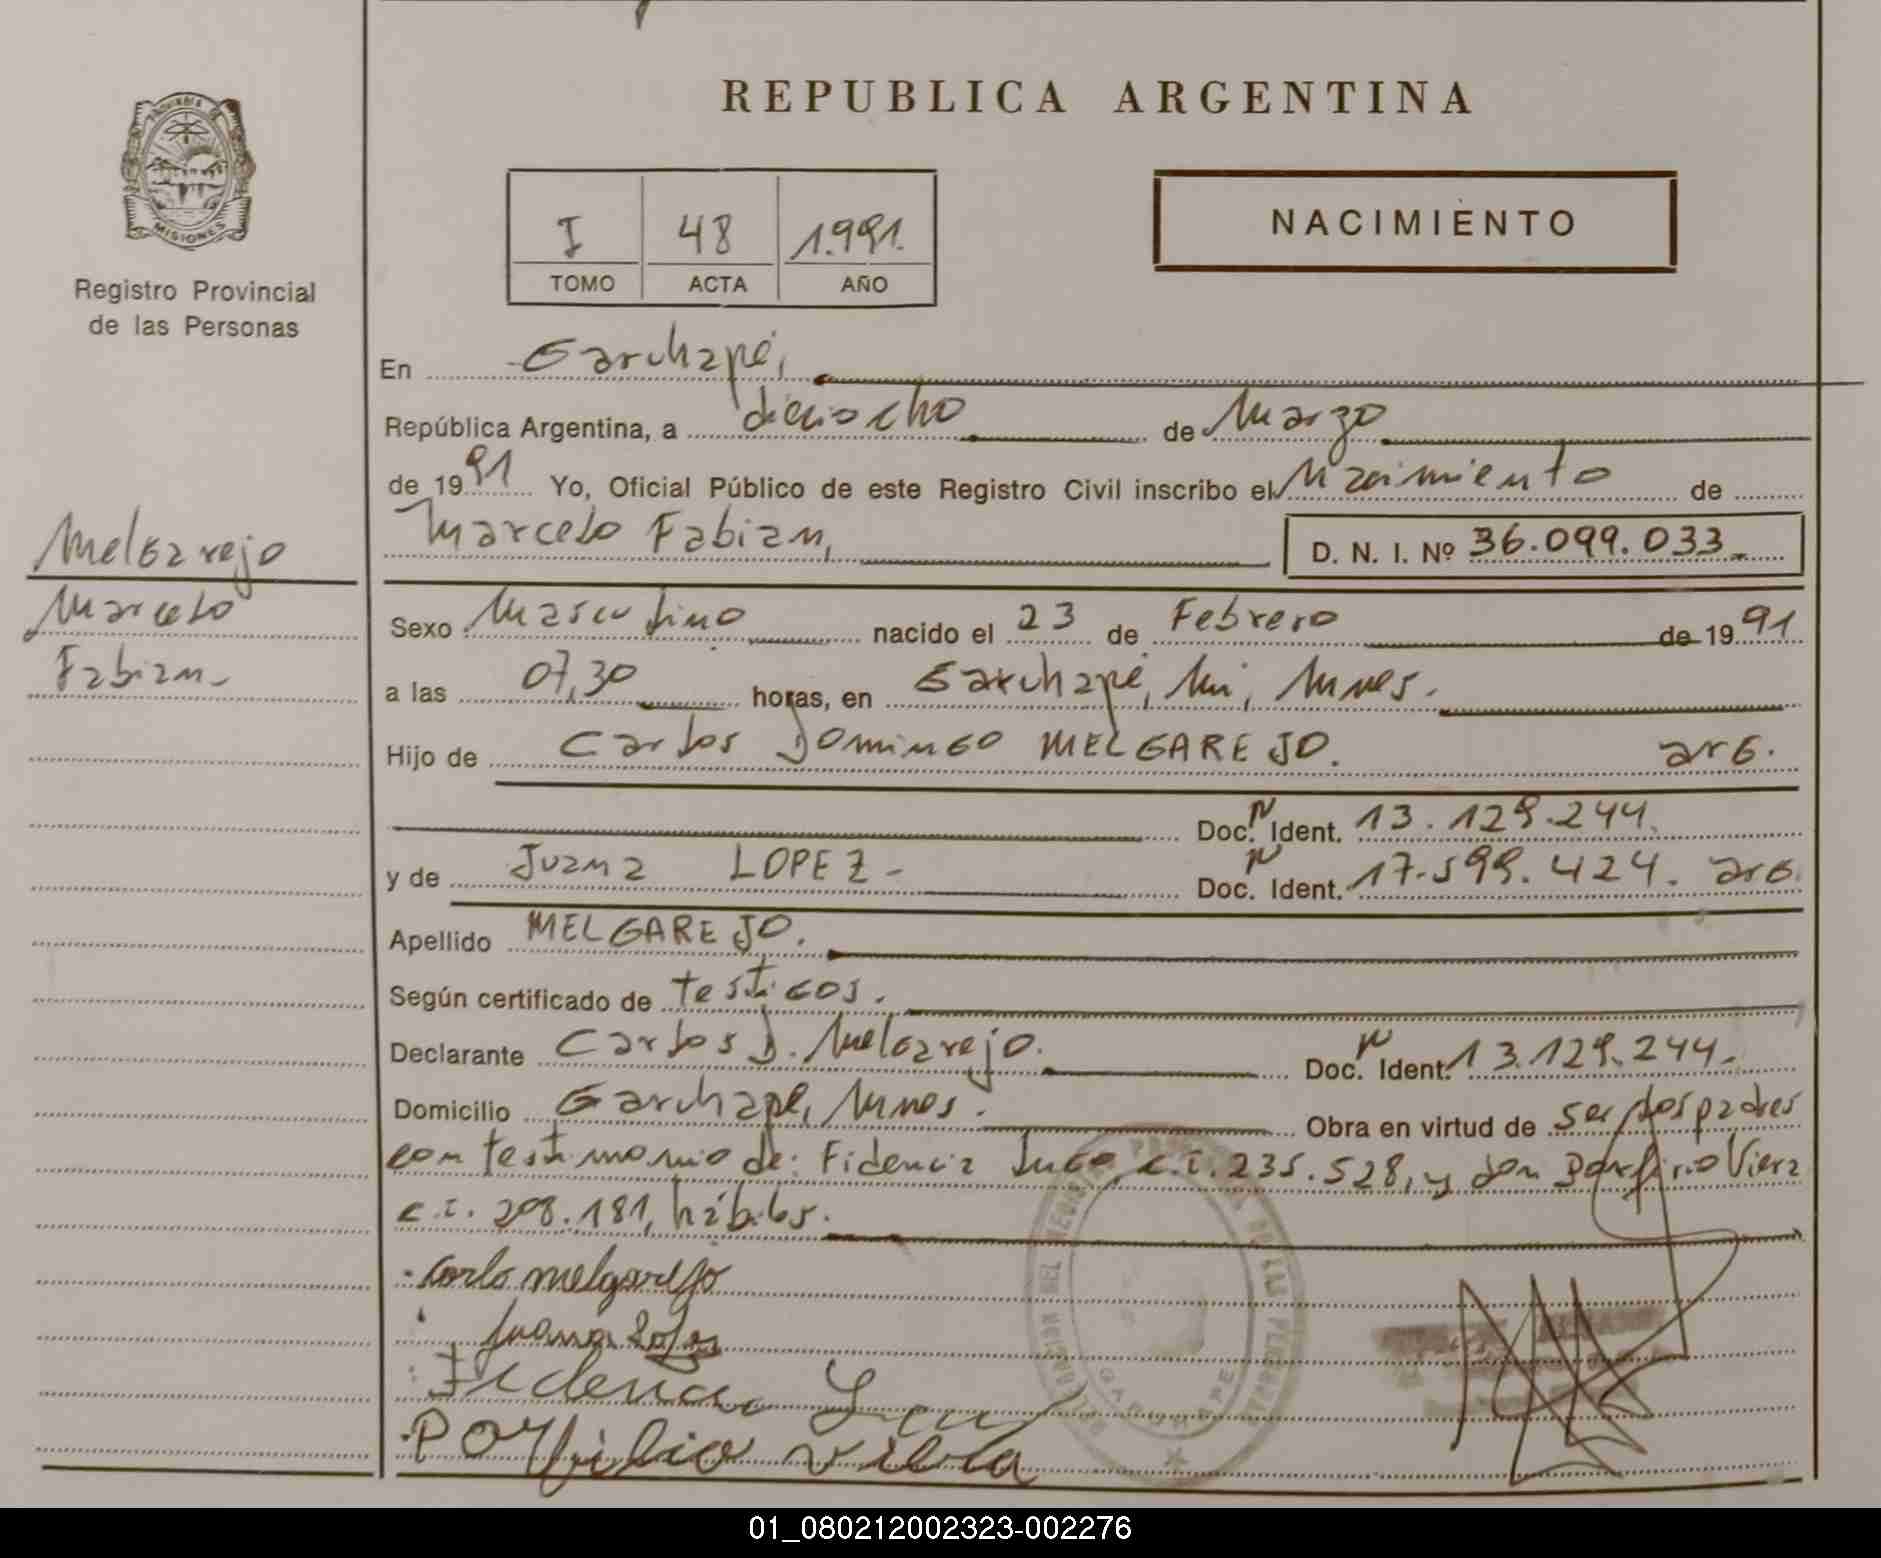 REPUBLICA ARGENTINA
MISIONES
Registro Provincial
de las Personas
I 48 1.991.
TOMO ACTA AÑO
NACIMIENTO
En Garuhapé,
República Argentina, a dieciocho de Marzo
de 1991 Yo, Oficial Público de este Registro Civil inscribo el Nacimiento de
Marcelo Fabian, D. N. I. Nº 36.099.033
Melgarejo
Marcelo
Fabian
Sexo Masculino nacido el 23 de Febrero de 1991
a las 07,30 horas, en Garuhapé, Mnes.
Hijo de Carlos Domingo MELGAREJO. arg.
Doc. Ident. 13.129.244.
y de Juana LOPEZ- Doc. Ident. 17.599.424. arg.
Apellido MELGAREJO.
Según certificado de testigos.
Declarante Carlos D. Melgarejo. Doc. Ident. 13.129.244.
Domicilio Garuhapé, Mnes. Obra en virtud de ser los padres
con testimonio de: Fidencia Lugo, c.i. 235.528, y don Porfirio Viera
c.i. 208.181, hábiles.
Carlo melgarejo
Juana
Fidencia
Porfilio viera
GARUHAPE
01_080212002323-002276